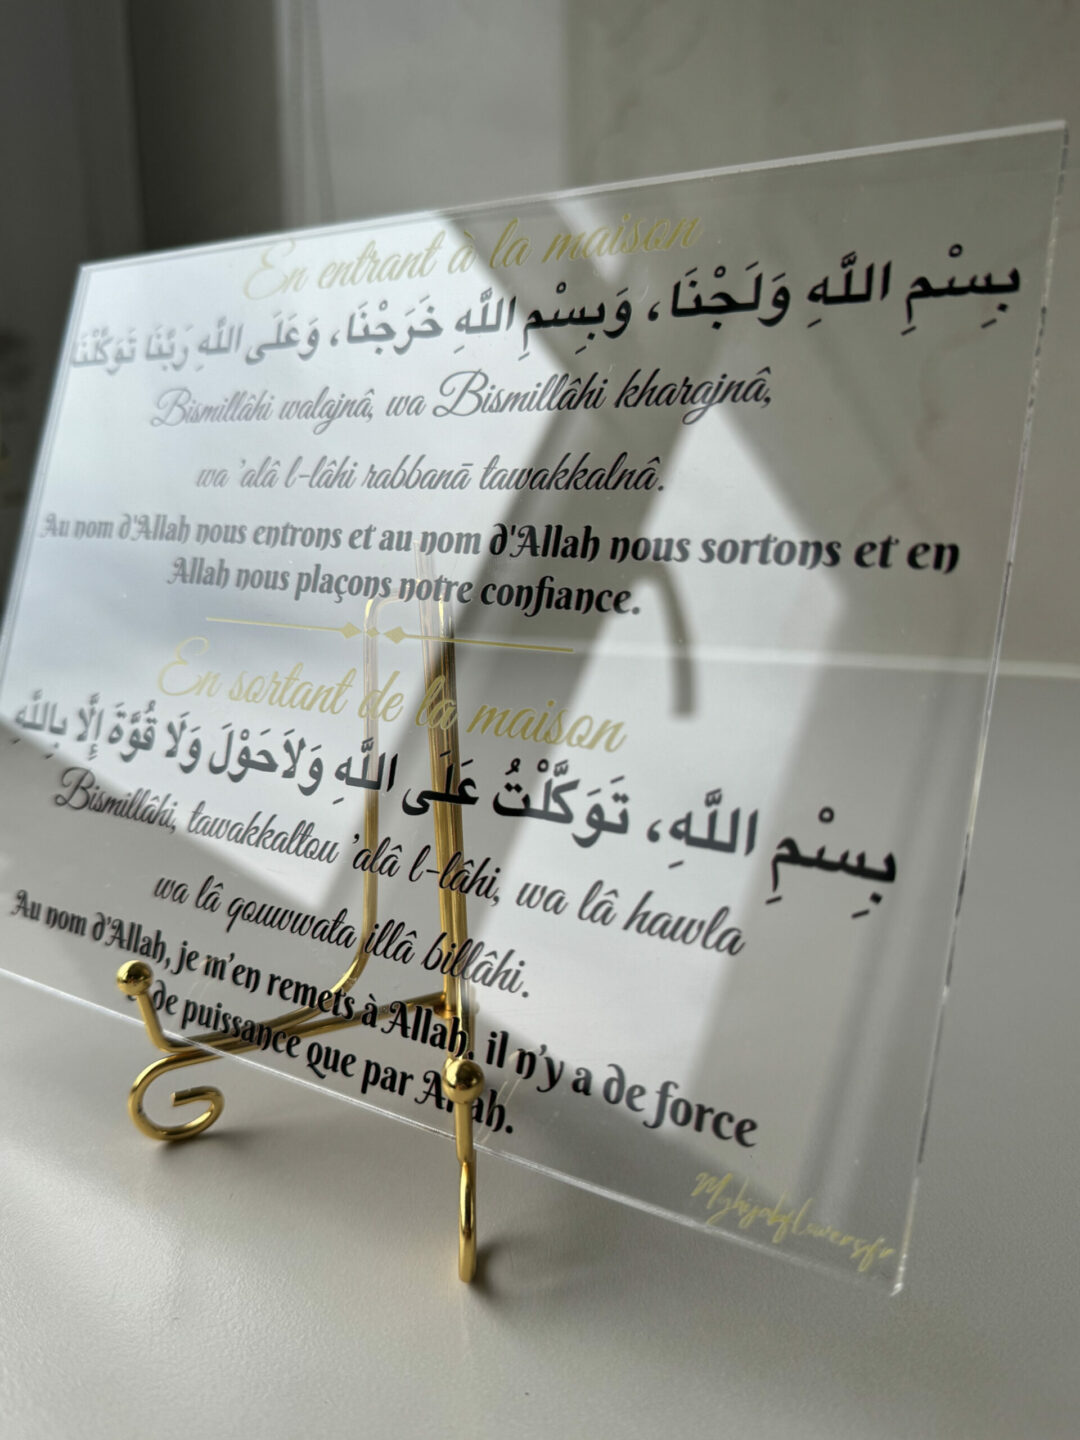 En entrant à la maison
بِسْمِ اللَّهِ وَلَجْنَا، وَبِسْمِ اللَّهِ خَرَجْنَا، وَعَلَى اللَّهِ رَبِّنَا تَوَكَّلْنَا
Bismillâhi walajnâ, wa Bismillâhi kharajnâ,
wa 'alâ l-lâhi rabbanā tawakkalnâ.
Au nom d'Allah nous entrons et au nom d'Allah nous sortons et en
Allah nous plaçons notre confiance.
En sortant de la maison
بِسْمِ اللَّهِ، تَوَكَّلْتُ عَلَى اللَّهِ وَلاَحَوْلَ وَلَا قُوَّةَ إِلَّا بِاللَّهِ
Bismillâhi, tawakkaltou 'alâ l-lâhi, wa lâ hawla
wa lâ qouwwata illâ billâhi.
Au nom d'Allah, je m'en remets à Allah, il n'y a de force
de puissance que par Allah.
Myhijabflowersfr